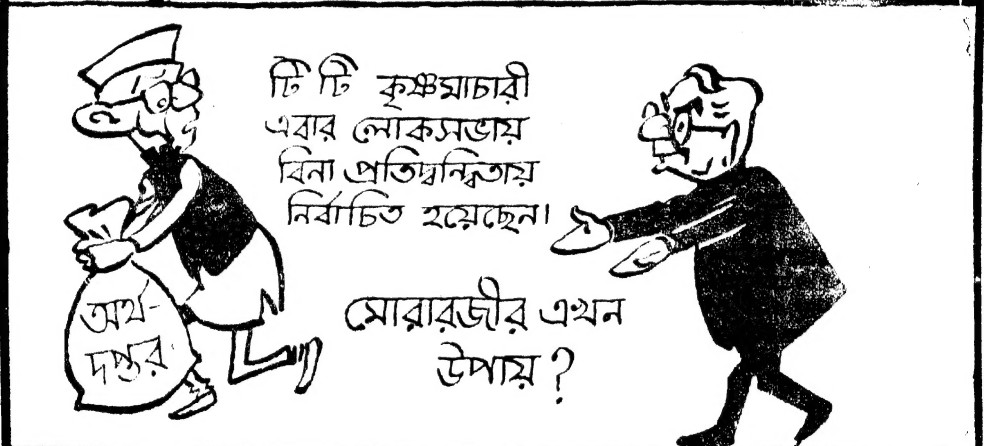 টি টি কৃষ্ণমাচারী
এবার লোকসভায়
বিনা প্রতিদ্বন্দ্বিতায়
নির্বাচিত হয়েছেন।
মোরারজীর এখন
উপায় ?
অর্থ-
দপ্তর